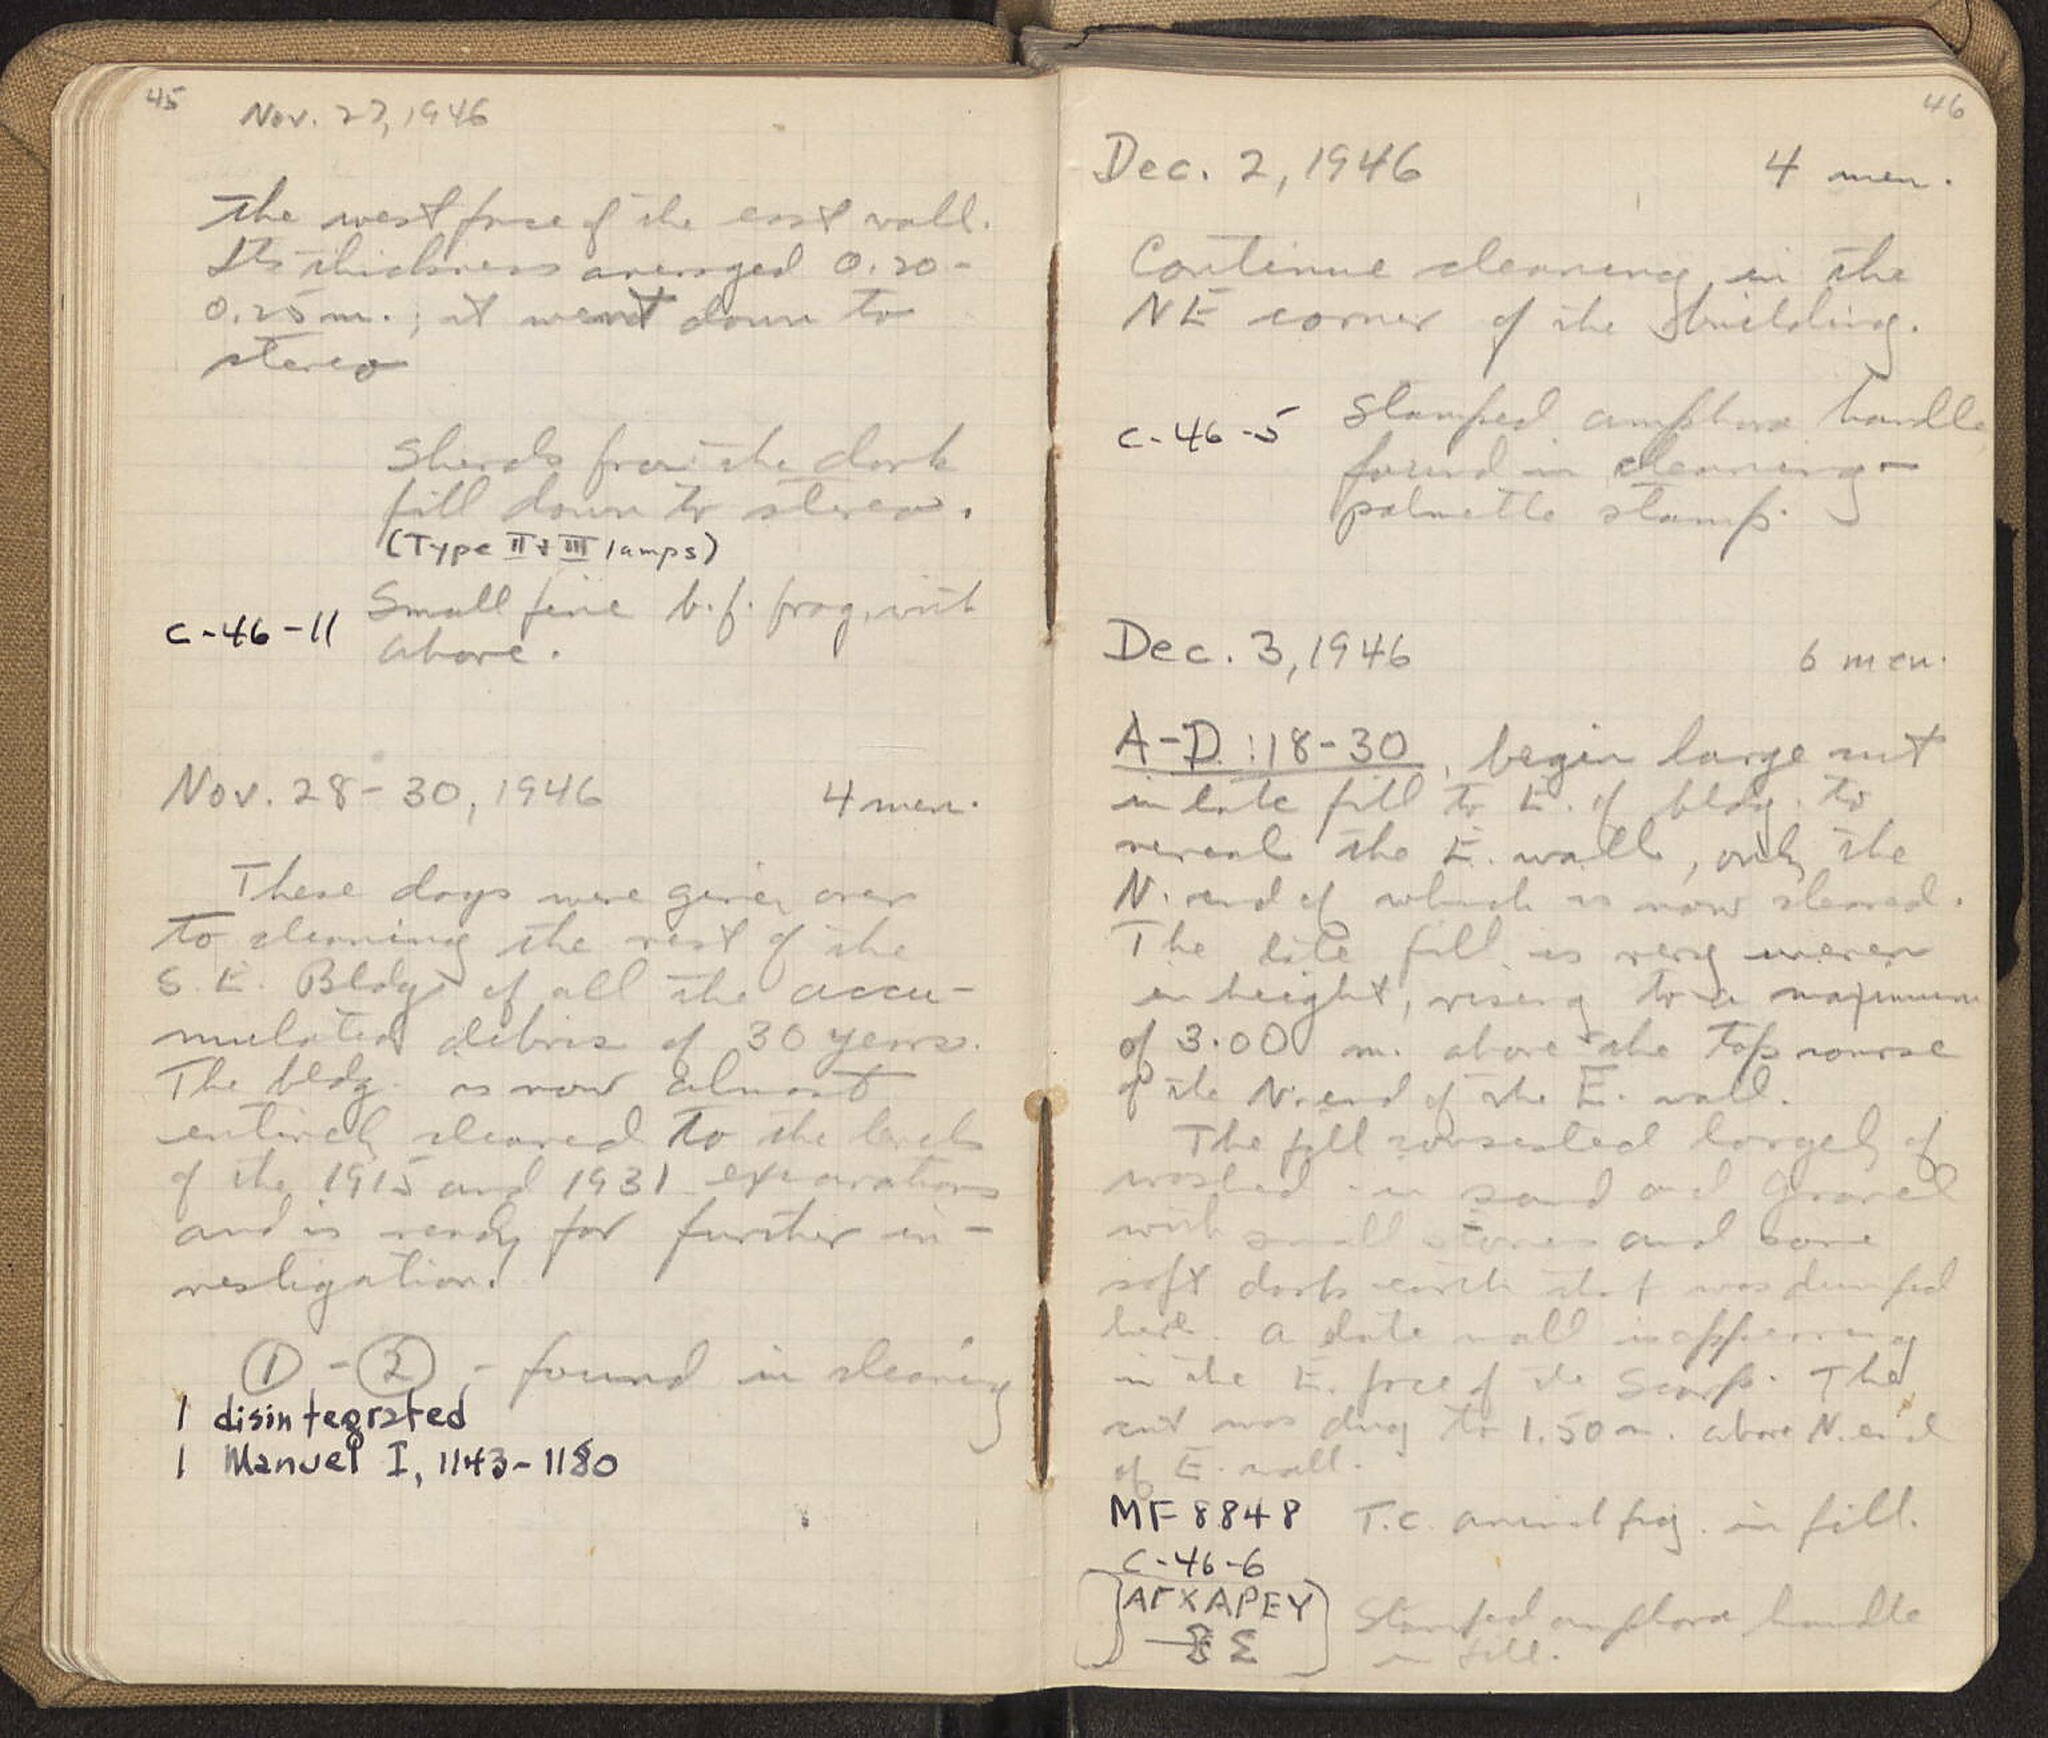 45
Nov. 27, 1946
the west face of the east wall.
Its thickness averaged 0.20-
0.25 m.; it went down to
stereo
Sherds from the dark
fill down to stereo.
(Type II + III lamps)
C-46-11 Small fine b.f. frag. with
above.
Nov. 28-30, 1946 4 men.
These days were given over
to cleaning the rest of the
S. E. Bldg. of all the accu-
mulated debris of 30 years.
The bldg. is now almost
entirely cleared to the levels
of the 1915 and 1931 excavations
and is ready for further in-
vestigation.
① - ② - found in cleaning
1 disintegrated
1 Manuel I, 1143-1180
46
Dec. 2, 1946 4 men.
Continue cleaning in the
NE corner of the building.
C-46-5 Stamped amphora handle
found in cleaning -
palmette stamp.
Dec. 3, 1946 6 men.
A-D:18-30, begin large cut
in late fill to E. of bldg. to
reveal the E. wall, only the
N. end of which is now cleared.
The late fill is very uneven
in height, rising to a maximum
of 3.00 m. above the top course
of the N. end of the E. wall.
The fill consisted largely of
washed-in sand and gravel
with small stones and some
soft dark earth that was dumped
here. A late wall is appearing
in the E. face of the scarp. The
cut was dug to 1.50 m. above N. end
of E. wall.
MF 8848 T.C. animal frag. in fill.
C-46-6
ΑΓΧΑΡΕΥ Stamped amphora handle
Σ in fill.